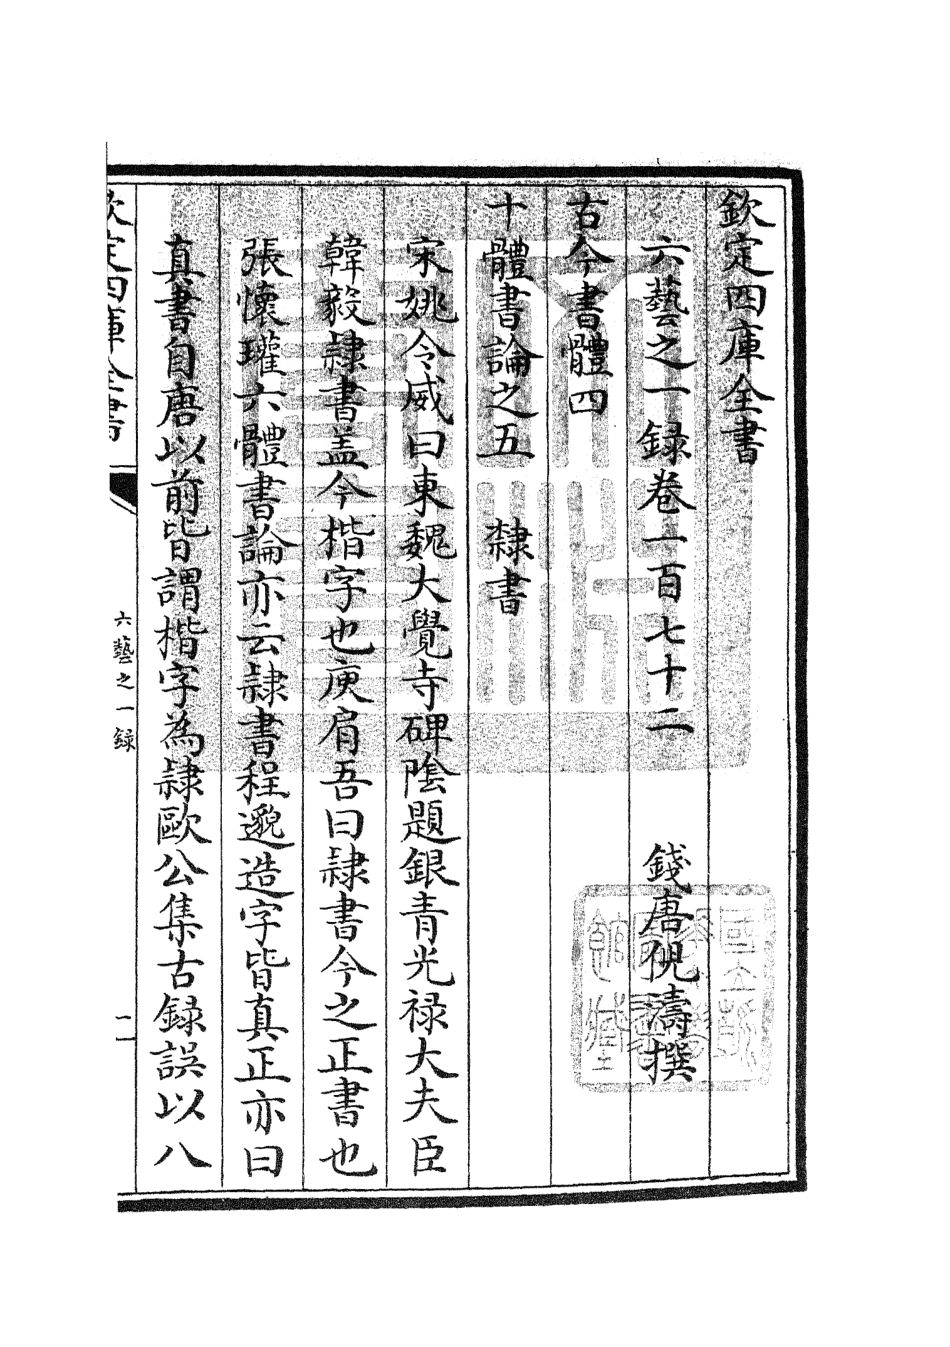 欽定四庫全書
六藝之一錄卷一百七十二　錢唐倪濤撰
古今書體四
十體書論之五　隸書
宋姚令威曰東魏大覺寺碑陰題銀青光禄大夫臣
韓毅隸書盖今楷字也庾肩吾曰隸書今之正書也
張懷瓘六體書論亦云隸書程邈造字皆真正亦曰
真書自唐以前皆謂楷字為隸歐公集古錄誤以八
欽定四庫全書
六藝之一録
一